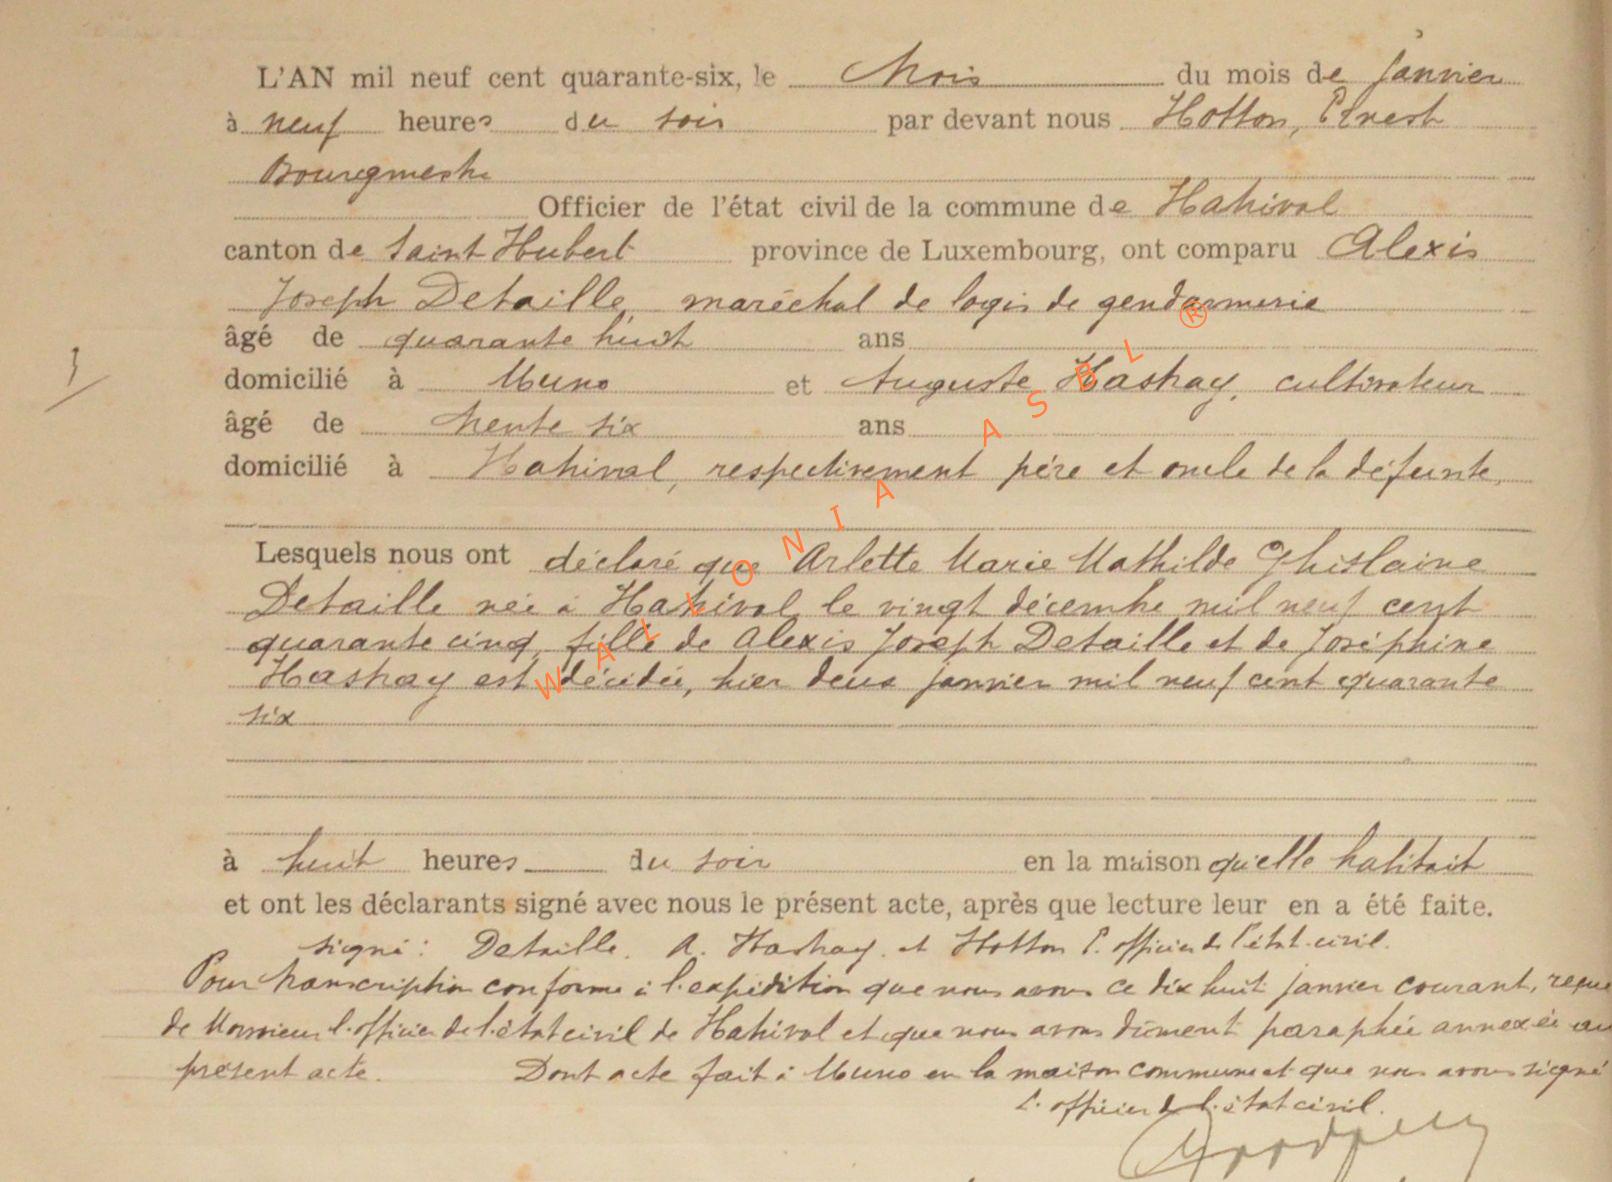 L'AN mil neuf cent quarante-six, le trois du mois de janvier
à neuf heures du soir par devant nous Hotton, Ernest
Bourgmestre
Officier de l'état civil de la commune de Hatrival
canton de Saint Hubert province de Luxembourg, ont comparu Alexis
Joseph Detaille, maréchal de logis de gendarmerie
âgé de quarante huit ans
domicilié à Muno et Auguste Hashay, cultivateur
âgé de trente six ans
domicilié à Hatrival, respectivement père et oncle de la défunte,
Lesquels nous ont déclaré que Arlette Marie Mathilde Ghislaine
Detaille née à Hatrival le vingt décembre mil neuf cent
quarante cinq, fille de Alexis Joseph Detaille et de Joséphine
Hashay est décédée, hier deux janvier mil neuf cent quarante
six
à huit heures du soir en la maison qu'elle habitait
et ont les déclarants signé avec nous le présent acte, après que lecture leur en a été faite.
signé : Detaille. A. Hashay. et Hotton l'officier de l'état-civil.
Pour transcription conforme à l'expédition que nous avons ce dix huit janvier courant, reçue
de Monsieur l'officier de l'état civil de Hatrival et que nous avons dûment paraphée annexée au
présent acte. Dont acte fait à Muno en la maison communale et que nous avons signé
L'officier de l'état civil.
WALLONIA ASBL ®